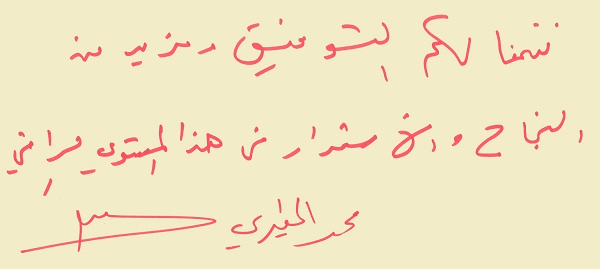 نتمنا لكم التوفيق ومزيد من
النجاح والاستمرار في هذا المستوى الراقي
محمد